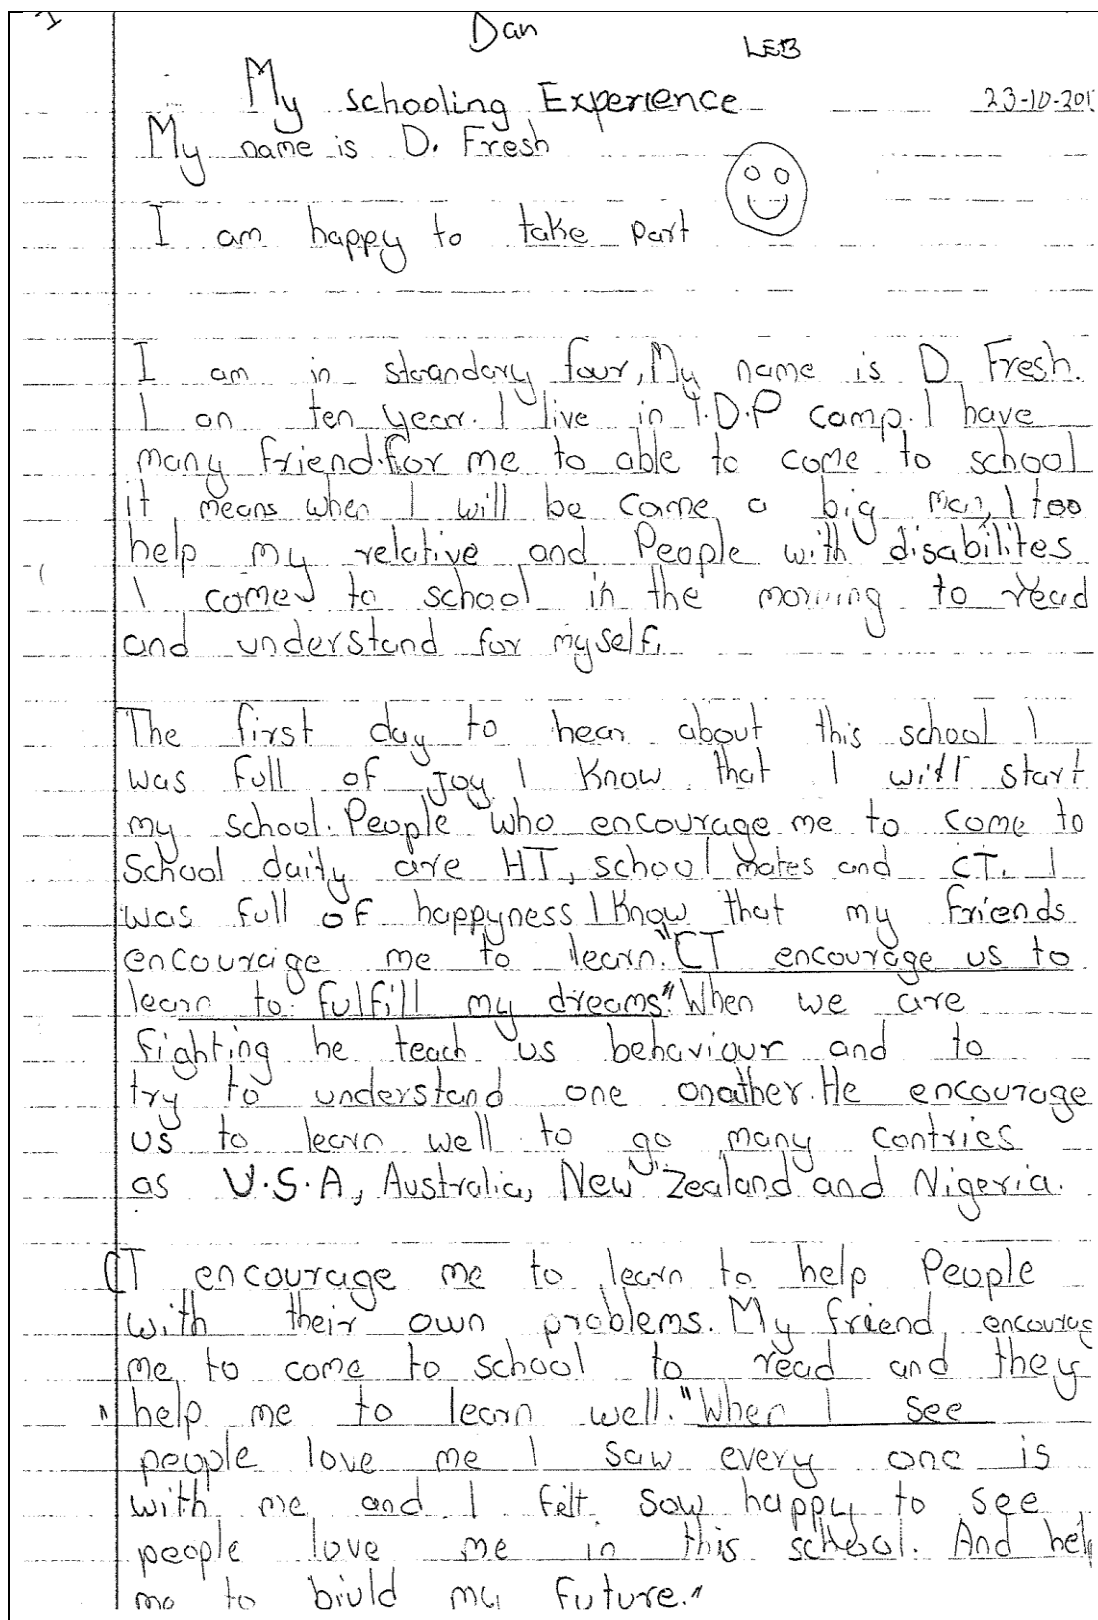 Dan
LEB
My schooling Experience 23-10-201
My name is D. Fresh
I am happy to take part
I am in standary four, My name is D. Fresh.
I an ten year. I live in I.D.P camp. I have
many friend. for me to able to come to school
it means when I will be came a big man, I too
help my relative and People with disabilites
I come to school in the morning to read
and understand for myself.
The first day to hear about this school I
was full of Joy I Know that I will start
my school. People who encourage me to come to
School daily are HT, school mates and CT. I
was full of happyness I Know that my friends
encouraige me to learn. "CT encourage us to
learn to fulfill my dreams". When we are
fighting he teach us behaviour and to
try to understand one onather. He encourage
us to learn well to go many contries
as U.S.A, Australia, New Zealand and Nigeria.
CT encourage me to learn to help People
with their own problems. My friend encourag
me to come to school to read and they
help me to learn well. "When I see
people love me I saw every one is
with me and I felt saw happy to see
people love me in this school. And hel
me to biuld my future."